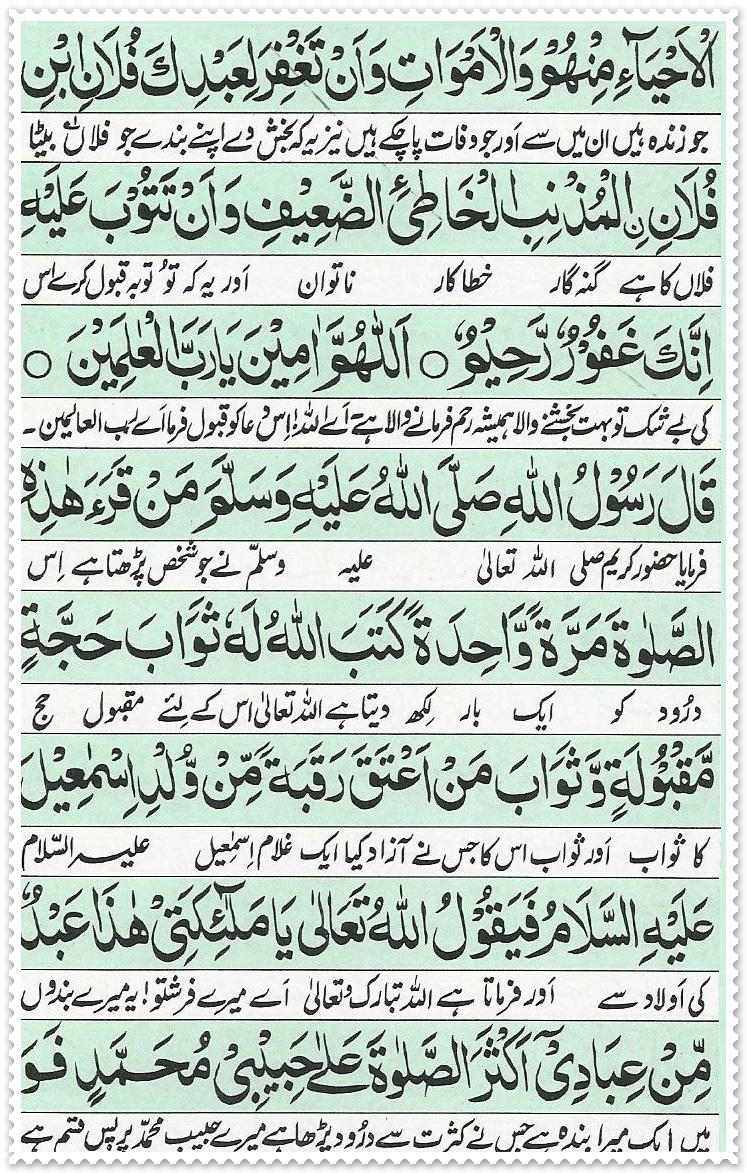 الْاَحْيَآءِ مِنْهُمْ وَالْاَمْوَاتِ وَاَنْ تَغْفِرَ لِعَبْدِكَ فُلَانِ ابْنِ
جو زندہ ہیں ان میں سے اَور جو وفات پا چکے ہیں نیز یہ کہ بخش دے اپنے بندے جو فلاں بیٹا
فُلَانِ نِ الْمُذْنِبِ الْخَاطِئِ الضَّعِيْفِ وَاَنْ تَتُوْبَ عَلَيْهِ
فلاں کا ہے گنہ گار خطا کار ناتوان اَور یہ کہ تو توبہ قبول کرے اس
اِنَّكَ غَفُوْرٌ رَّحِيْمٌ ○ اَللّٰهُمَّ اٰمِيْنَ يَا رَبَّ الْعٰلَمِيْنَ ○
کی بے شک تو بہت بخشنے والا ہمیشہ رحم فرمانے والا ہے اَے اللہ! اِس دُعا کو قبول فرما اَے رب العالمین ۔
قَالَ رَسُوْلُ اللّٰهِ صَلَّى اللّٰهُ عَلَيْهِ وَسَلَّمَ مَنْ قَرَءَ هٰذِهِ
فرمایا حضور کریم صلی اللہ تعالیٰ علیہ وسلّم نے جو شخص پڑھتا ہے اِس
الصَّلٰوةَ مَرَّةً وَّاحِدَةً كَتَبَ اللّٰهُ لَهٗ ثَوَابَ حَجَّةٍ
درُود کو ایک بار لِکھ دیتا ہے اللہ تعالیٰ اس کے لِئے مقبول حج
مَّقْبُوْلَةٍ وَّثَوَابَ مَنْ اَعْتَقَ رَقَبَةً مِّنْ وُّلْدِ اِسْمٰعِيْلَ
کا ثواب اَور ثواب اس کا جس نے آزاد کیا ایک غلام اِسمٰعیل علیہ السّلام
عَلَيْهِ السَّلَامُ فَيَقُوْلُ اللّٰهُ تَعَالٰى يَا مَلٰٓئِكَتِىْ هٰذَا عَبْدٌ
کی اَولاد سے اَور فرماتا ہے اللہ تبارک وتعالیٰ اَے میرے فرشتو! یہ میرے بندوں
مِّنْ عِبَادِىْٓ اَكْثَرَ الصَّلٰوةَ عَلٰى حَبِيْبِىْ مُحَمَّدٍ فَوَ
میں ایک میرا بندہ ہے جس نے کثرت سے درُود پڑھا ہے میرے حبیب محمدؐ پر پس قسم ہے